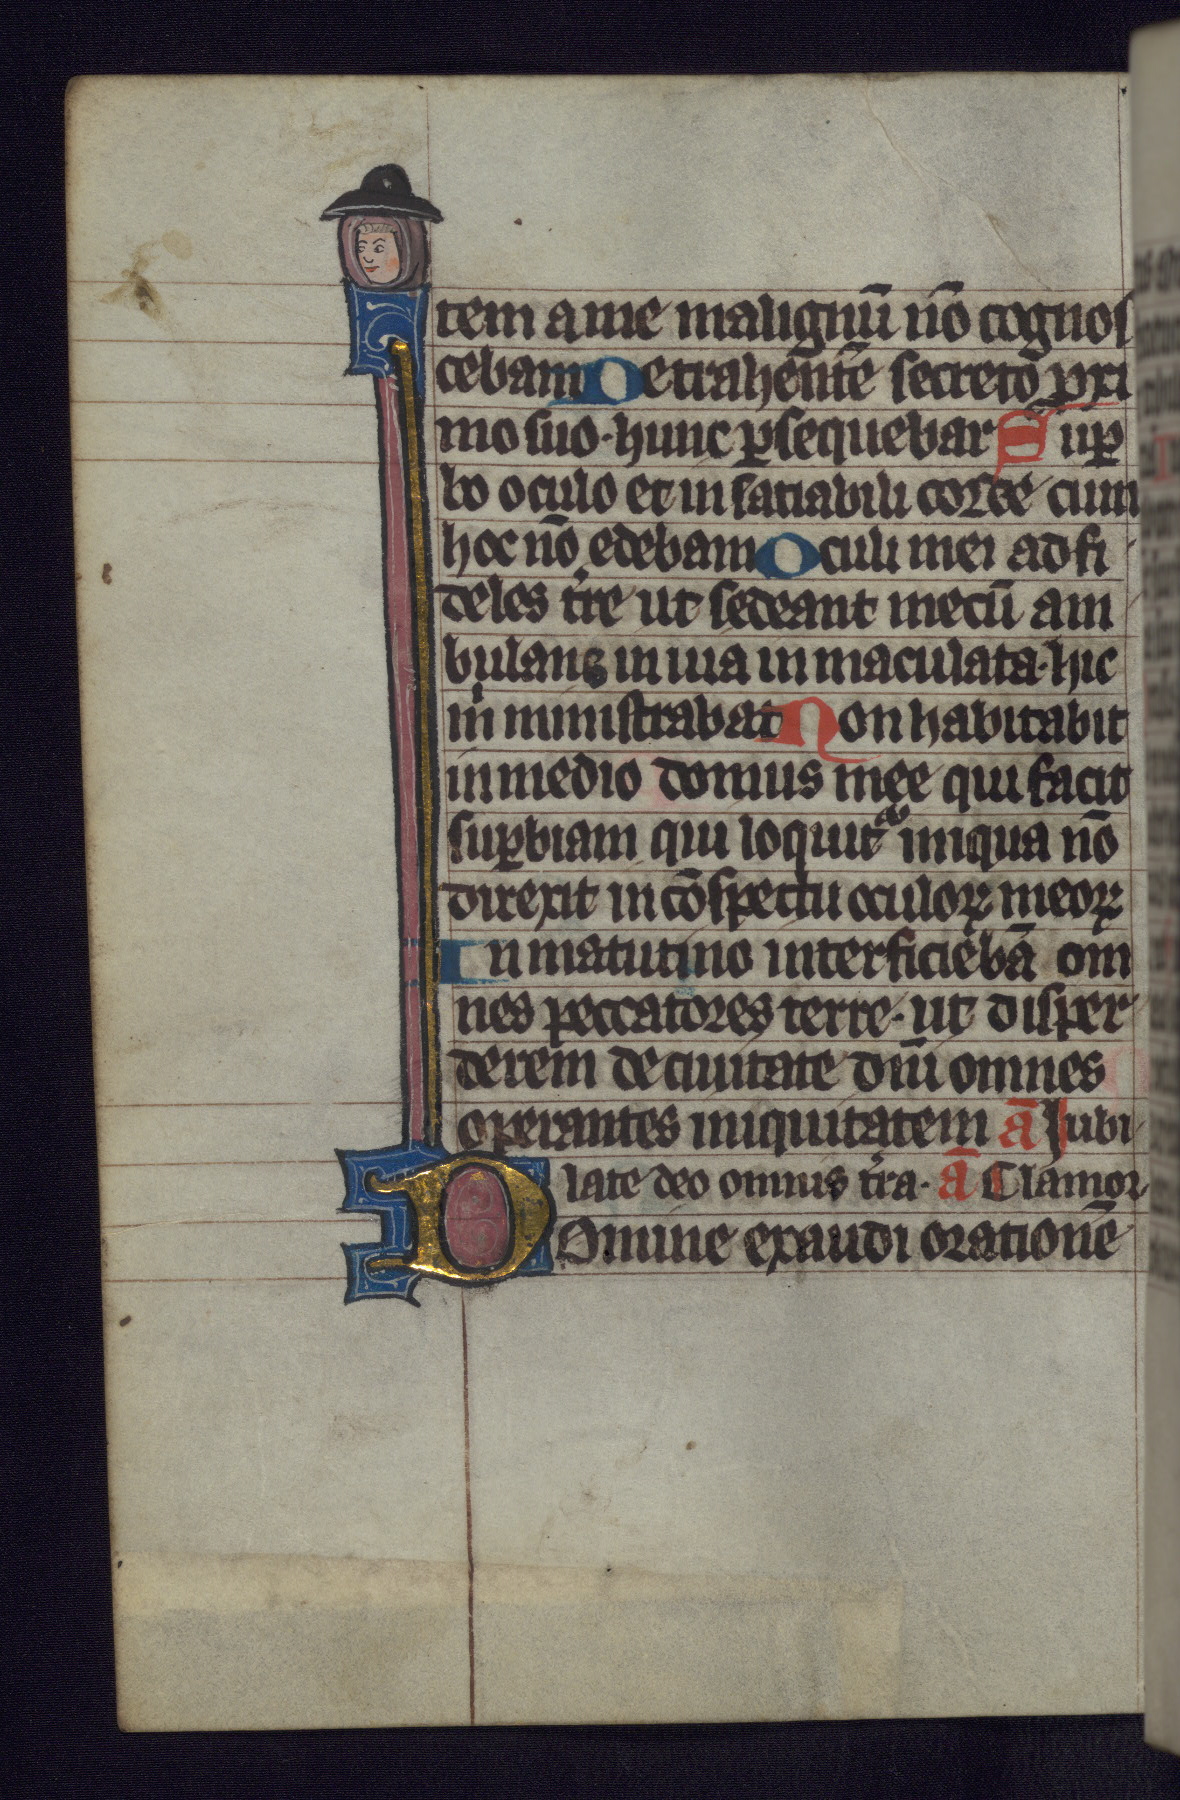 tem a me malignū nō cognos
cebam Detrahentē secreto ꝓxi
mo suo· hunc ꝑsequebar Suꝑ
bo oculo et in satiabili corde cum
hoc nō edebam Oculi mei ad fi
deles tr̄e ut sedeant mecū am
bulans in uia in maculata· hic
m̍ ministrabat Non habitabit
in medio domus mee qui facit
suꝑbiam qui loquit᷑ iniqua nō
direxit in cōspectu oculoꝝ meoꝝ
In matutino interficiebā om
nes peccatores terre· ut disper
derem de ciuitate dn̄i omnes
operantes iniquitatem ā Iubi
late deo omnis tr̄a· ā Clamor
Domine exaudi orationē